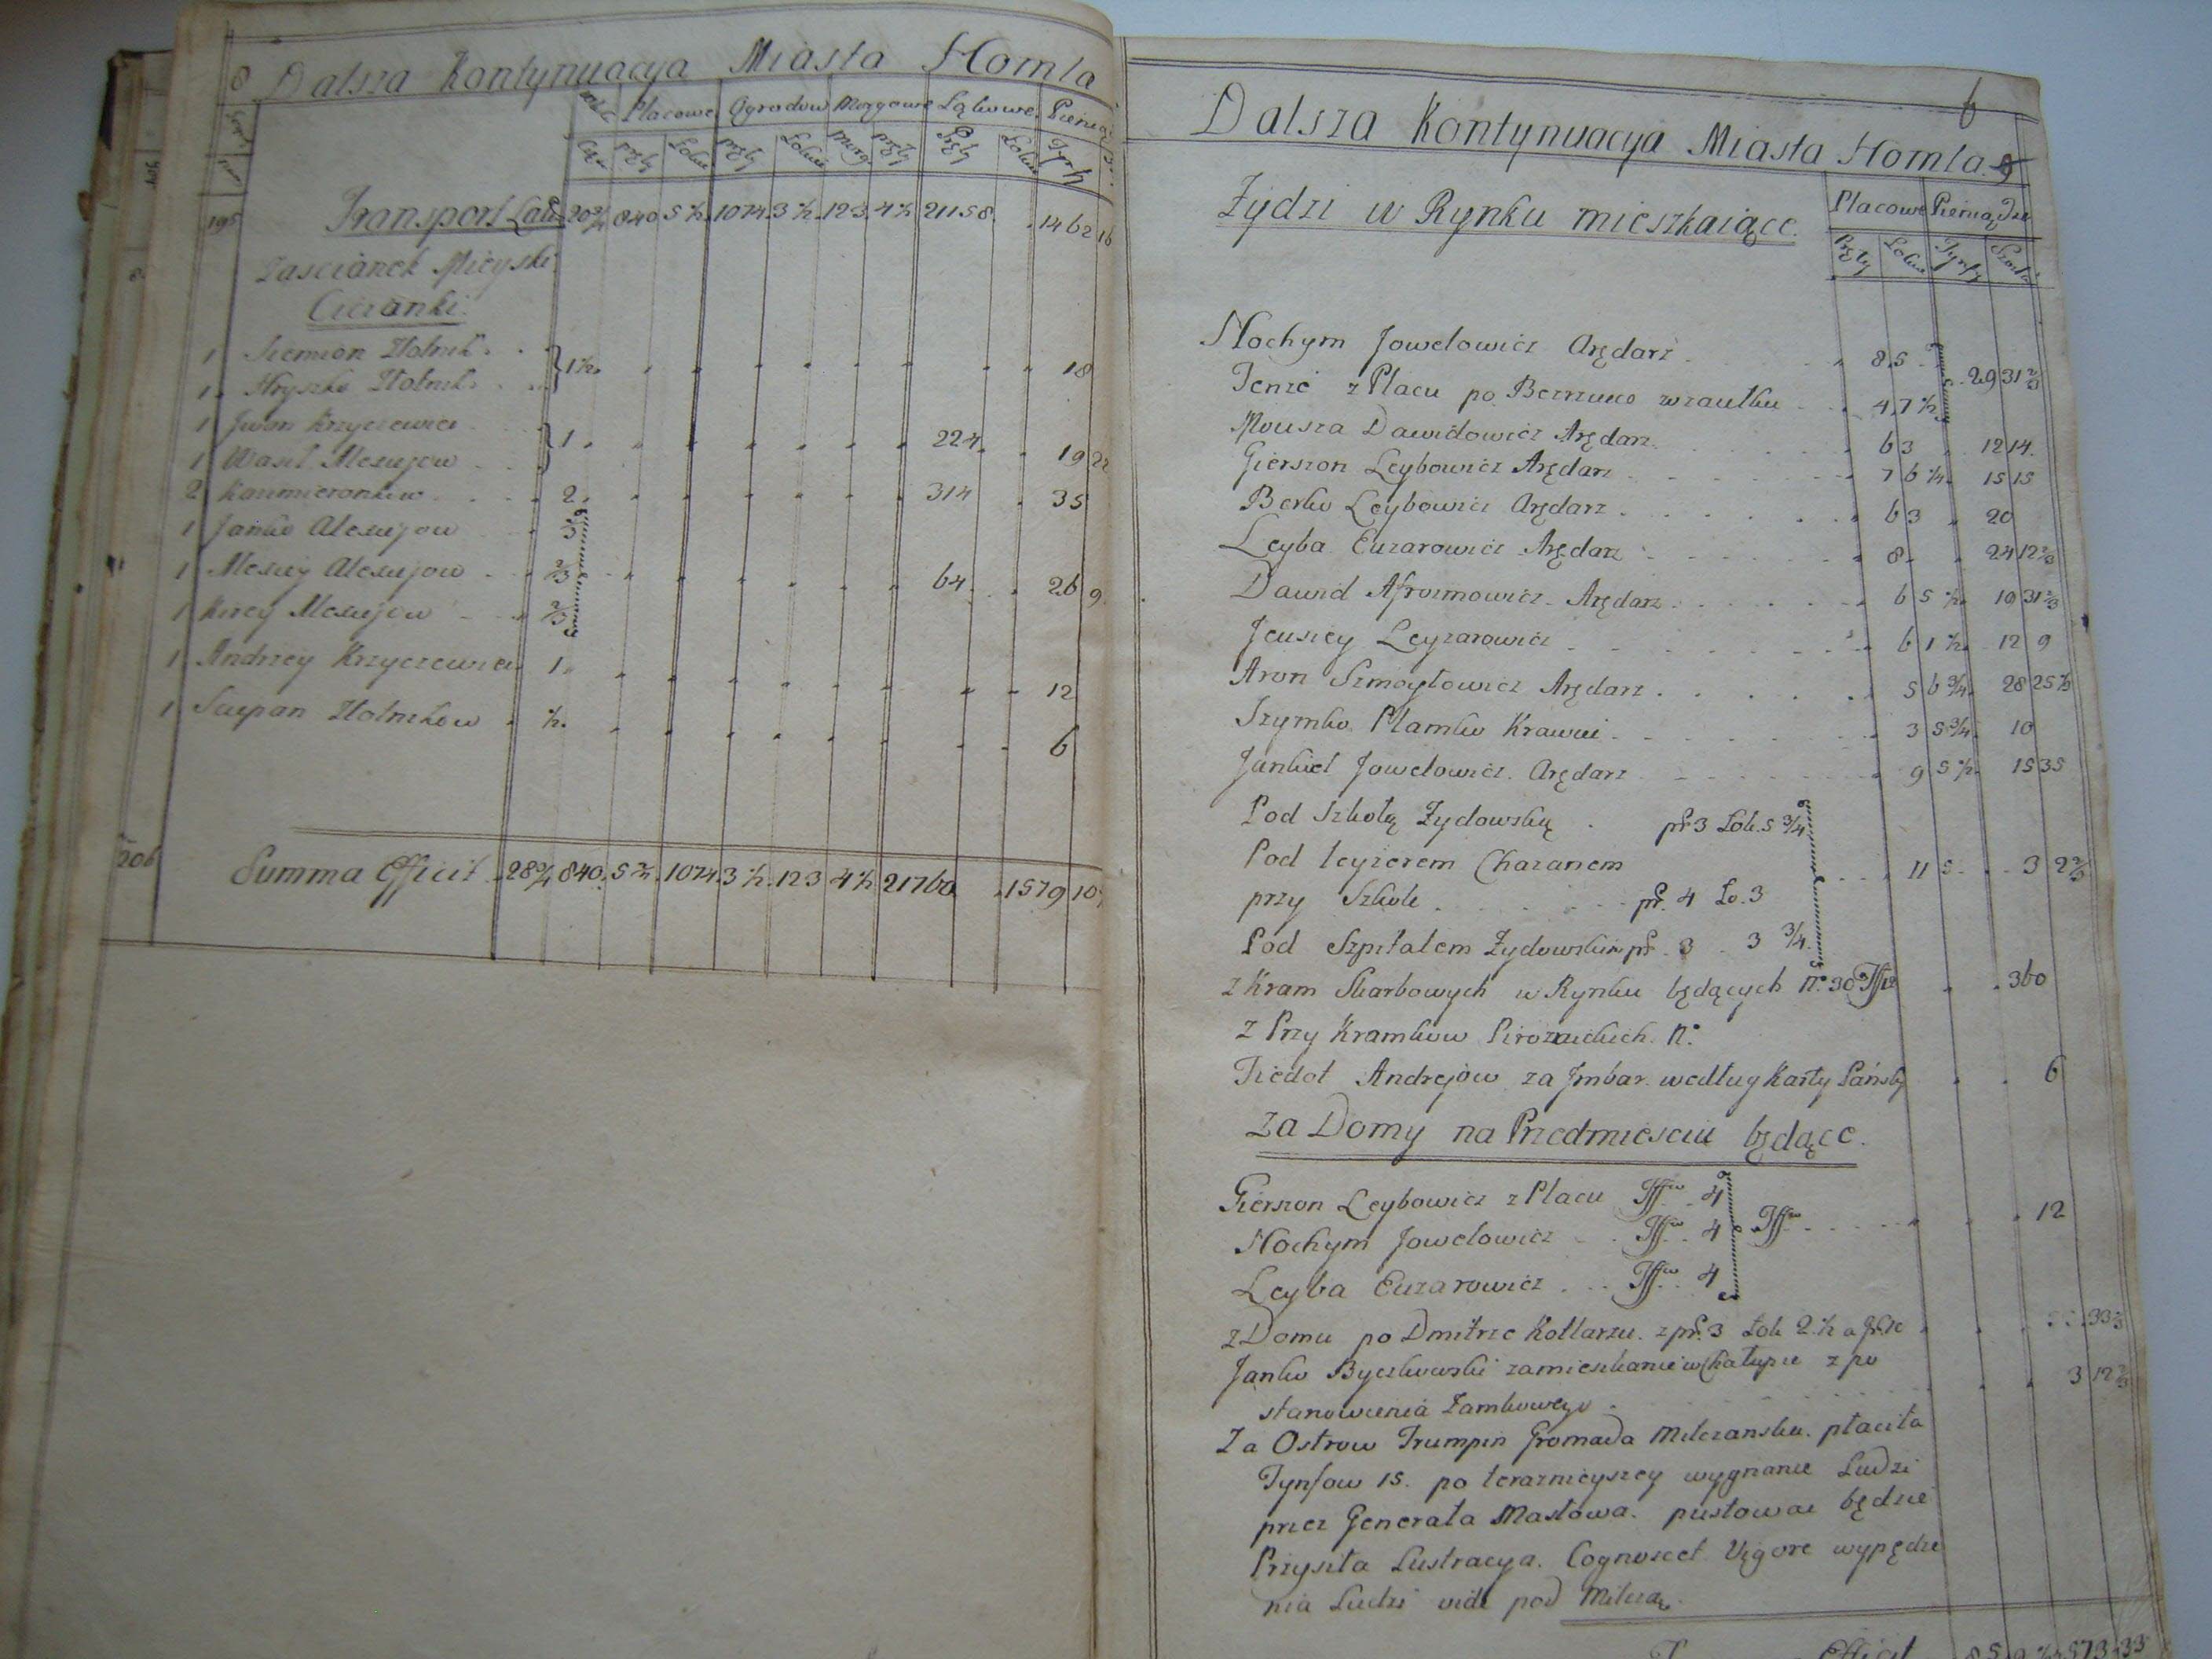 8 Dalsza Kontynuacya Miasta Homla
Placowe Ogrodow Morgowe Łąkowe Pienią
pręty Łokcie pręty Łokcie morg pręty Pręty Łokcie Tynf
195 Transport Latis 20 840 5 ½ 1074 3 ½ 123 4 ½ 2115 8 1462 16
Zascianek Mieyski
Cieranki.
1 Siemion Złotnik 1½ 18
1 Hryszko Złotnik
1 Jwan Krzyczewiec 1 224 19 22
1 Wasil Alexiejow
2 Kazimieronkow 2 314 35
1 Janko Alexiejow ⅔
1 Alexiey Alexiejow ⅔ 64 26 9
1 Kirey Alexiejow ⅔
1 Andrzey Krzyczewiec 1 12
1 Sciepan Złotnikow ½ 6
206 Summa Efficit 28¾ 840 5 ½ 1074 3 ½ 123 4 ½ 21760 1579 10
6
Dalsza Kontynuacya Miasta Homla. 9
Żydzi w Rynku mieszkaiące. Placowe Pieniądze
Pręty Łokcie Tynfy Szosta
Nochym Jowelowicz Arędarz 8 5 29 31⅔
Tenże z Placu po Berzunie wzaułku 4 7 ½
Mousza Dawidowicz Arędarz 6 3 12 14
Gierszon Leybowicz Arędarz 7 6 ¼ 15 15
Berko Leybowicz Arędarz 6 3 20
Leyba Euzarowicz Arędarz 8 24 12⅔
Dawid Afroimowicz Arędarz 6 5 ½ 19 31⅔
Jeusiey Leyzarowicz 6 1 ½ 12 9
Aron Szmoyłowicz Arędarz 5 6¾ 28 25⅓
Szymko Plamko Krawiec 3 5¾ 10
Jankiel Jowelowicz Arędarz 9 5 ½ 15 35
Pod Szkołą Żydowską pr. 3 Łok. 5 ¾
Pod leyzerem Chazanem 11 5 3 2⅔
przy Szkole pr. 4 Ło. 3
Pod Szpitalem Żydowskim pr. 3 3 ¾
z Kram Skarbowych w Rynku będących N° 30 Tff 12 360
z Przy Kramkow N°
Fiedot Andrejow za Jmbar. według Karty Pańsky 6
Za Domy na Przedmiesciu będące.
Gierszon Leybowicz z Placu Tffw 4
Nochym Jowelowicz Tffw 4 Tffw 12
Leyba Euzarowicz Tffw 4
z Domu po Dmitrze Kotlarzu. z pr. 3 Łok 2 ½ 33⅓
Janko Byczkowski zamieszkanie w Chałupie z po
stanowienia Zamkowego 3 12⅔
Za Ostrow Trumpin Gromada Milczanska. płaciła
Tynfow 15. po teraznieyszey wygnanie Ludzi
przez Generała Masłowa. pustowac będzie
Przyszła Lustracya. Cognoscet Vigore wypędze
nia Ludzi vide pod Milczą.
Efficit 85 573 33